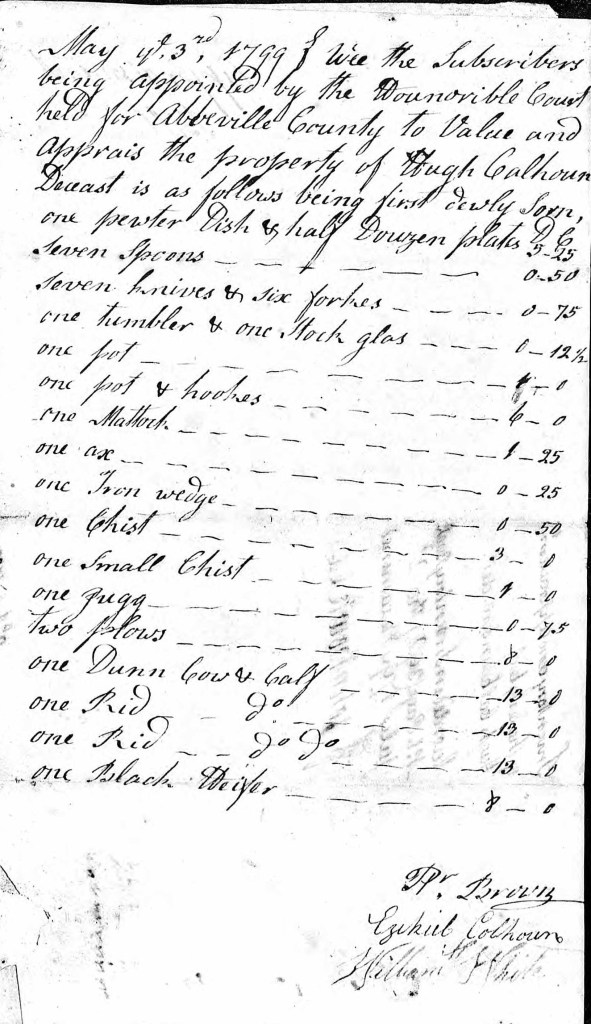 May ye 3rd, 1799 } Wee the Subscribers
being appointed by the Hounorible Court
held for Abbeville County to Value and
apprais the property of Hugh Calhoun
Deceast is as follows being first dewly Sorn,
D C
one pewter Dish & half Douzen plates 5-25
seven Spoons - - - - - - 0-50
seven knives & six forkes - - - - 0-75
one tumbler & one Stock glas - - - 0-12½
one pot - - - - - - - 1-0
one pot & hookes - - - - - - 6-0
one Mattock - - - - - - - 1-25
one ax - - - - - - - - 0-25
one Iron wedge - - - - - - 0-50
one Chist - - - - - - - 3-0
one small Chist - - - - - - 1-0
one jugg - - - - - - - 0-75
two plows - - - - - - - 8-0
one Dunn Cow & Calf - - - - 13-0
one Rid - - do - - - - - 13-0
one Rid - - do do - - - - 13-0
one Black Heifer - - - - - - 8-0
Brown
Ezekiel Colhoun
William White